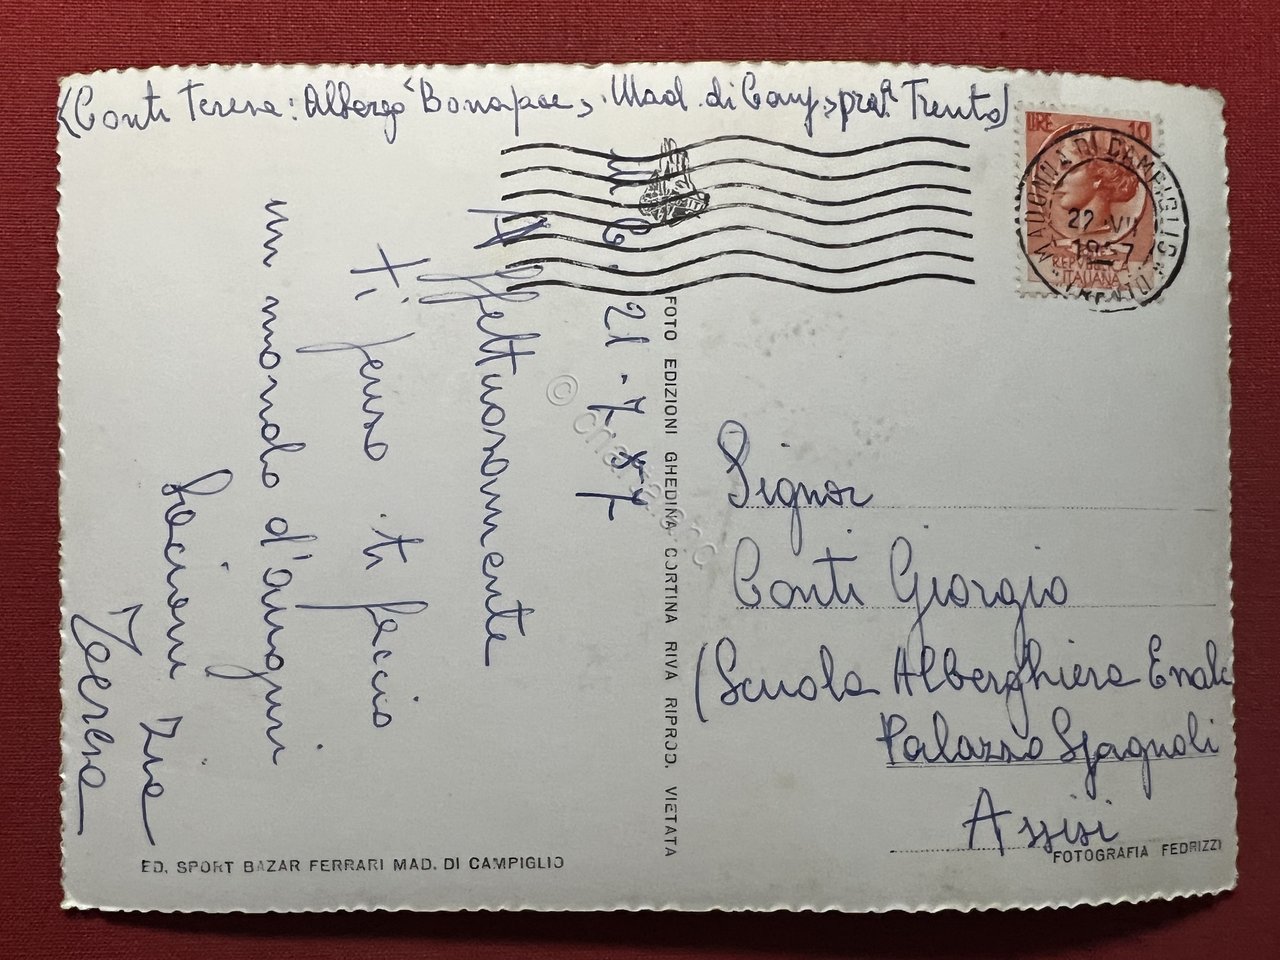 (Conti Teresa: Albergo "Bonapace", Mad. di Camp., prov. Trento)
LIRE 10
MADONNA DI CAMPIGLIO
22 VII
1957
(TRENTO)
REPUBBLICA
ITALIANA
M. C. 21-7-57
Affettuosamente
Ti penso. ti faccio
un mondo d'auguri
Bacioni Zia
Teresa
FOTO EDIZIONI GHEDINA CORTINA RIVA RIPROD. VIETATA
© charta s.r.o
Signor
Conti Giorgio
(Scuola Alberghiera Enalc
Palazzo Spagnoli
Assisi
ED. SPORT BAZAR FERRARI MAD. DI CAMPIGLIO
FOTOGRAFIA FEDRIZZI